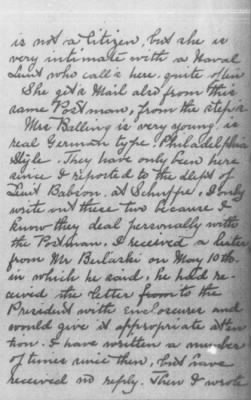 is not a Citizen, but she is
very intimate with a Naval
Lieut who call's here, quite often
She gets Mail also from this
same Postman, from the steps
Mrs Belling is very young, is
real German type. Philadelphia
Style. They have only been here
since I reported to the Dept of
Lieut Babion. At Schuyfse, I only
write out these two because I
know they deal personally with
the Postman. I received a letter
from Mr Belaski on May 10th.
in which he said, he had re-
ceived the letter from to the
President with Enclosures and
would give it appropriate atten
tion. I have written a number
of times since then, but have
received no reply. Then I wrote